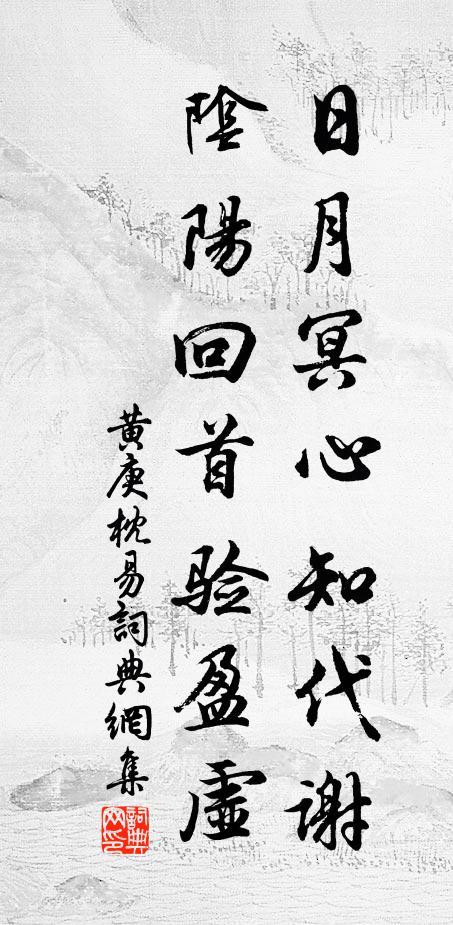 日月冥心知代谢
陰陽回首验盈虚
黄庚枕易詞典網集
詞典网印